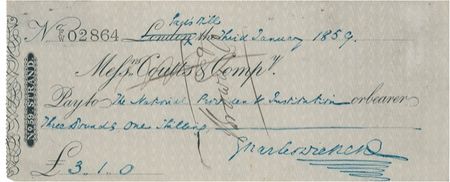 Nº 02864 London, the Third January 1859.
Messrs. Coutts & Compy.
Pay to The National Provident Institution or bearer
Three Pounds One Shilling
£3.1.0
Nº 59, STRAND.